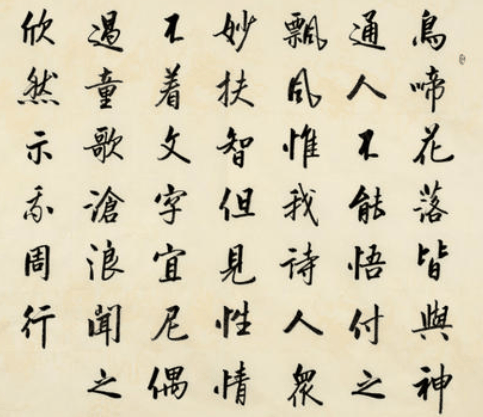 鳥啼花落皆與神
通人不能悟付之
飄風惟我詩人衆
妙扶智但見性情
不着文字宜尼偶
過童歌滄浪聞之
欣然示我周行